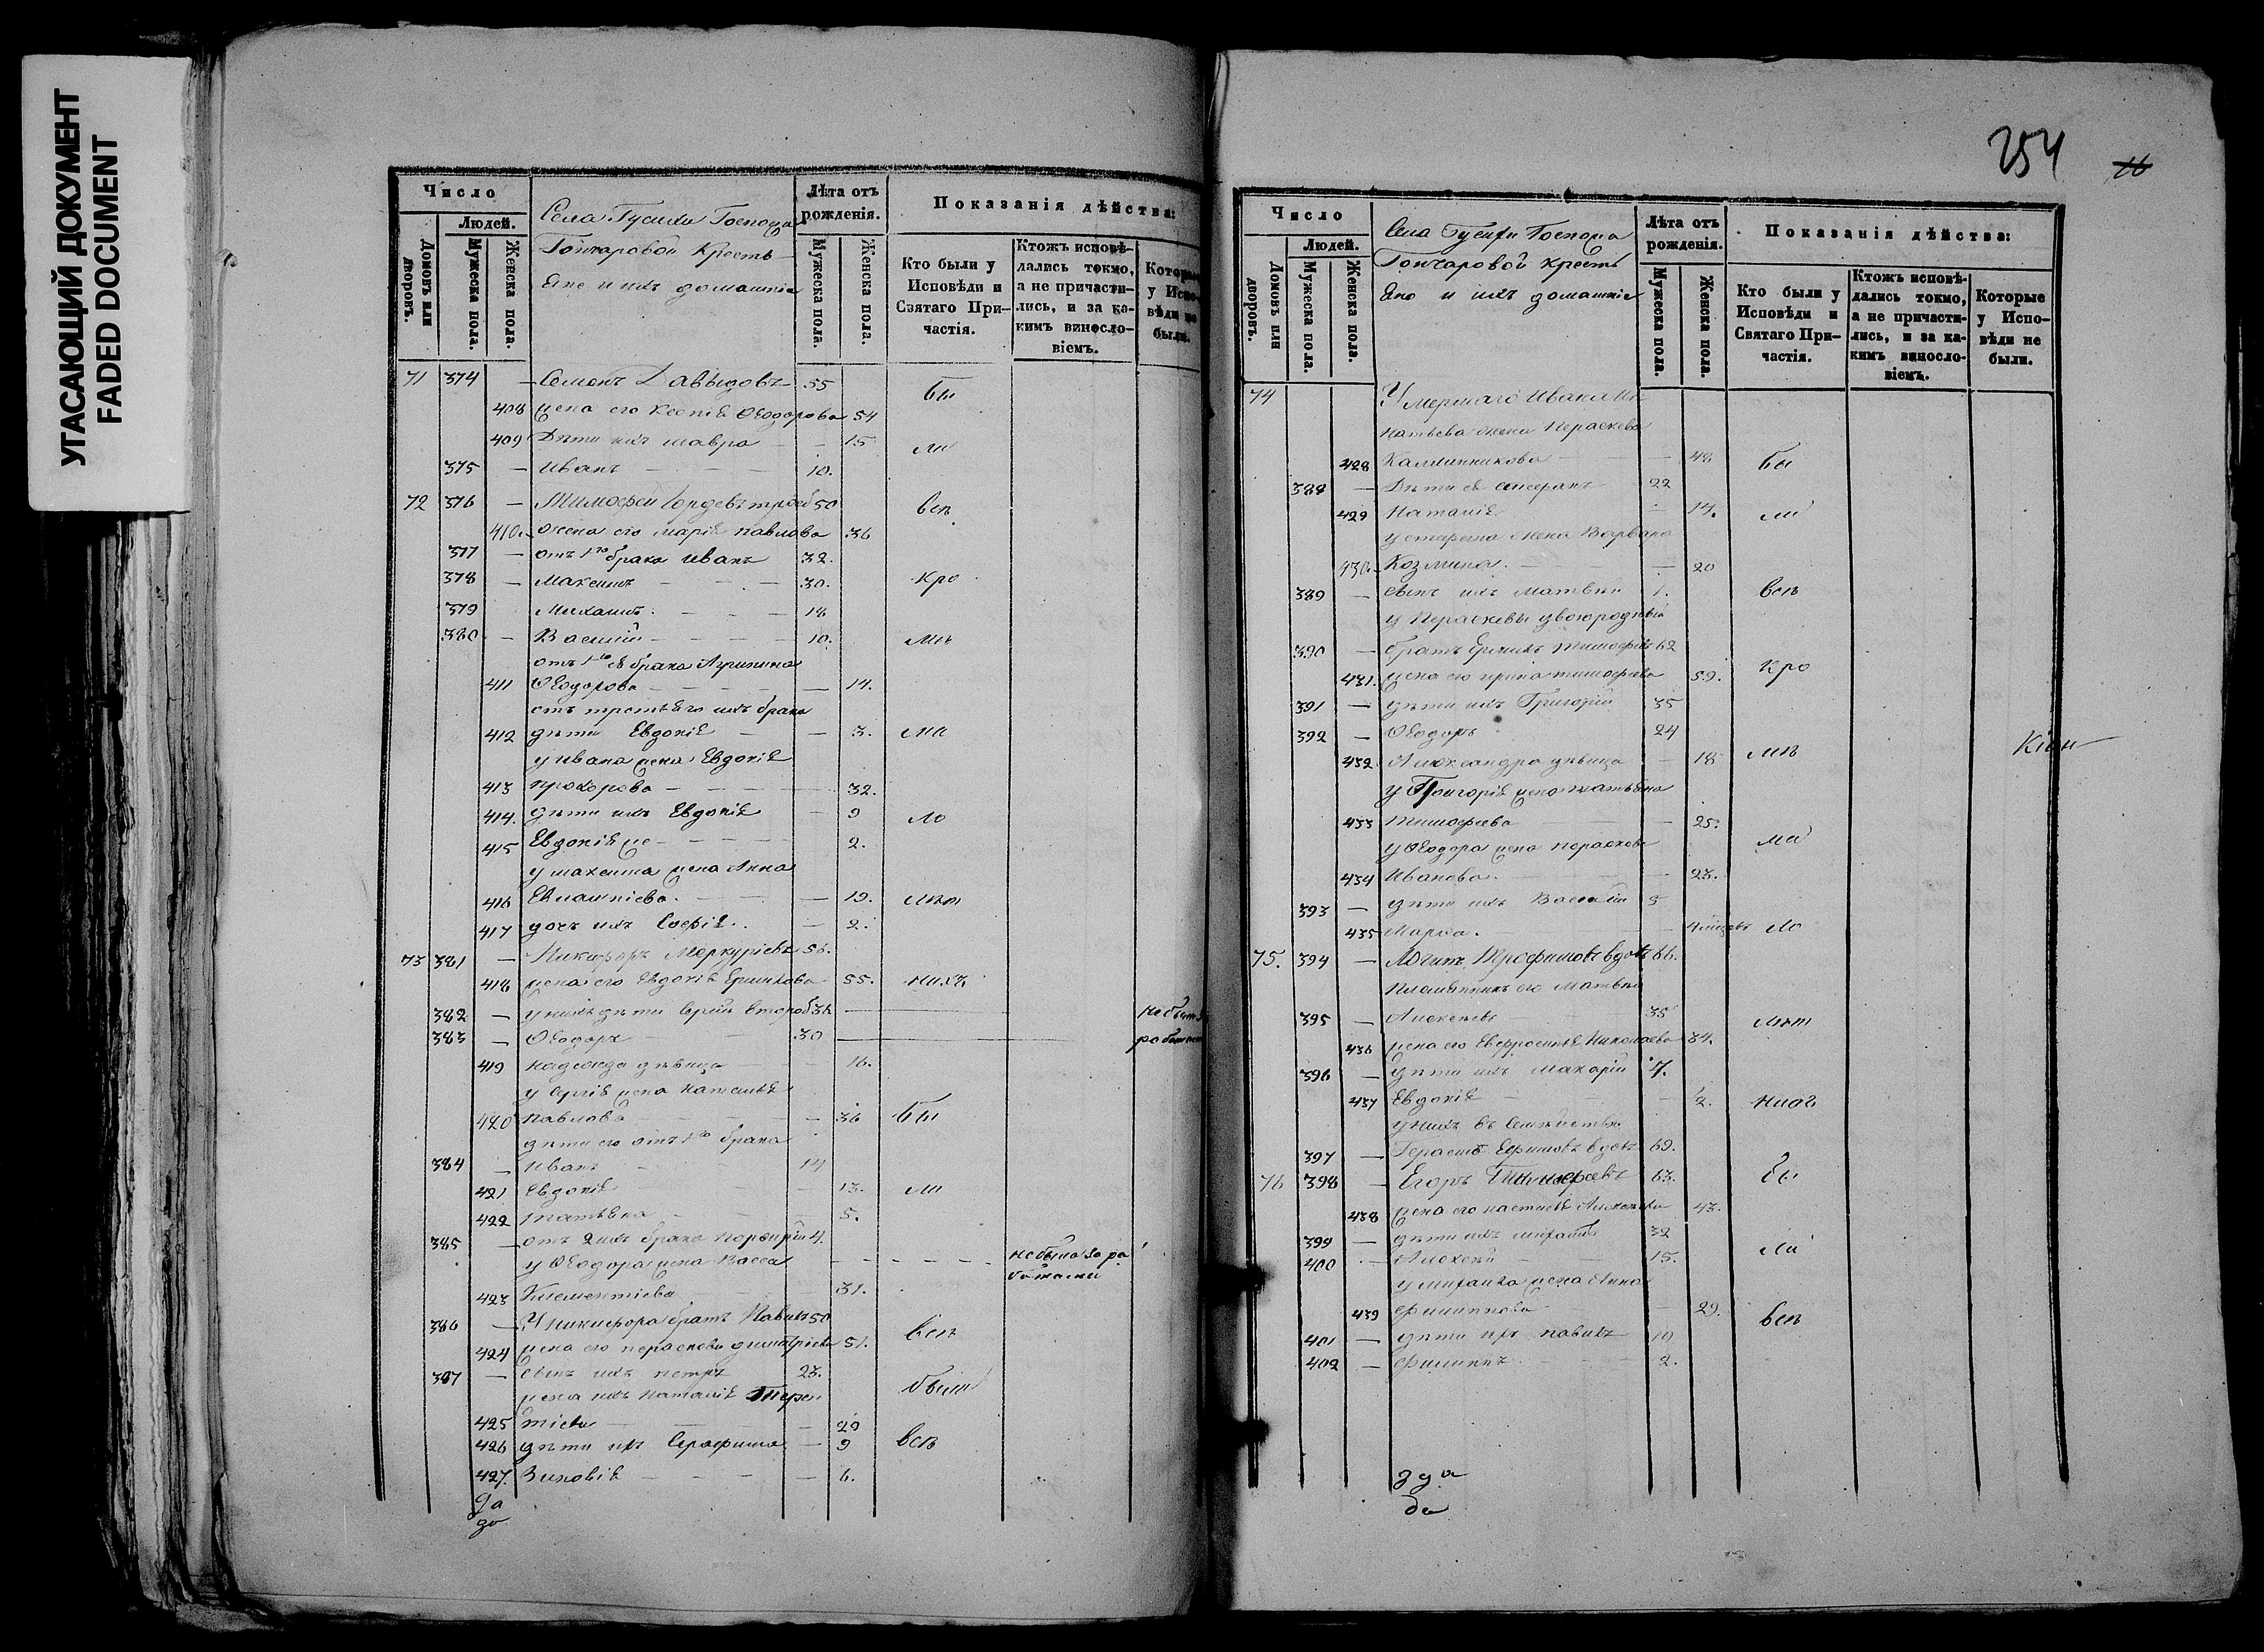 УГАСАЮЩИЙ ДОКУМЕНТ
FADED DOCUMENT
Число
Людей.
Домовъ или дворовъ.
Мужеска пола.
Женска пола.
Села Гусихи Госпожа
Гончаровой Кресть
яне и ихъ домашніе
Лѣта отъ рожденія.
Мужеска пола.
Женска пола.
Показанія дѣйства:
Кто были у Исповѣди и Святаго Причастія.
Ктожъ исповѣдались токмо, а не причастились, и за какимъ винословіемъ.
Которые у Исповѣди не были.
71 374 — Семенъ Давыдовъ 55 Бы
408 жена его Ксенія Ѳеодорова 54
409 Дѣти ихъ мавра — — 15 ли
375 — Иванъ — — — 10.
72 376 — Тимофей 50 всѣ
410. жена его марія павлова 36
377 — отъ 1го брака иванъ 32.
378 — Максимъ — — — 30. кро
379 Михаилъ. — — — 18
380 — Василій — — — — 10. мѣ
брака Агрипина
411 Ѳеодорова — — — — — 14.
отъ третьяго ихъ брака
412 дѣти Евдокія — — 3. ма
у ивана жена Евдокія
413 прохорова — — — — 32.
414. дѣти ихъ Евдокія — 9 ло
415 Евдокія же — — — — 2.
у максима жена Анна
416 — — 19. лѣт
417 дочь ихъ Софія. . — 2.
73 381 — Никифоръ Меркуріевъ 56.
418 жена его Евдокія Ермилова 55. нихъ
382 — у нихъ дѣти
383 — Ѳеодоръ — 30
419 надежда дѣвица — — 16.
у Сергія жена наталья
420 павлова — — — — 36 Бы
дѣти его отъ 1го брака
384 — Иванъ 14
421 Евдокія 13. ли
422 татьяна — — 5.
385 — отъ 2 ихъ брака порфирій 4.
у Ѳеодора жена Васса — — — — — не были за ра
ботами
423 Климентіева 31.
386 — У никифора братъ 50 всѣ
424 жена его параскева димитріева 51.
387 — сынъ ихъ петръ 23.
жена ихъ наталія Терен были
425 тіева — — — 29
426 дѣти ихъ Серафима — 9 всѣ
427. Зиновія — — — — 6.
да
до
254
16
Число
Людей.
Домовъ или дворовъ.
Мужеска пола.
Женска пола.
Села Гусихи Госпожа
Гончаровой кресть
яне и ихъ домашніе
Лѣта отъ рожденія.
Мужеска пола.
Женска пола.
Показанія дѣйства:
Кто были у Исповѣди и Святаго Причастія.
Ктожъ исповѣдались токмо, а не причастились, и за какимъ винословіемъ.
Которые у Исповѣди не были.
74 Умершаго Ивана Иг
натьева жена Параскева
428 Калинникова — — — 48 Бы
388 — Дѣти ея 22
429 Наталія — 14. ли
жена Варвара
430. Козмина. — — — 20
389 — сынъ ихъ Матвѣй 1. всѣ
у Параскевы двоюродный
390 — братъ Ермилъ тимофѣевъ 62
431. жена его ирина тимофѣева 59. кро
391 — дѣти ихъ Григорій 35
392 — Ѳеодоръ 24
432 Александра дѣвица — 18 мѣ
у Григорія жена татьяна
433 тимофѣева — 25.
у Ѳеодора жена параскева ма
434 Иванова. — — 23.
393 — дѣти ихъ Василій 5
435 Марѳа. — ло
75. 394 — Логинъ Трофимовъ вдовъ 66.
Племянникъ его Матвѣя
395 — Алексѣй 35 лѣт
436 жена его Евфросинія Николаева 34.
396 — дѣти ихъ Макарій 7.
437 Евдокія — — 2. нихъ
у нихъ въ семействѣ
397 — Герасимъ Ефимовъ вдовъ 69.
76 398 — Егоръ Тимофѣевъ 63. бы
438 жена его настасія Алексѣева 43.
399 — дѣти ихъ михаилъ 32
400 — Алексѣй — — 15. ли
у михаила жена Анна
439 филиппова — — — 29. всѣ
401 — дѣти ихъ павелъ 10
402 — филиппъ. — 2.